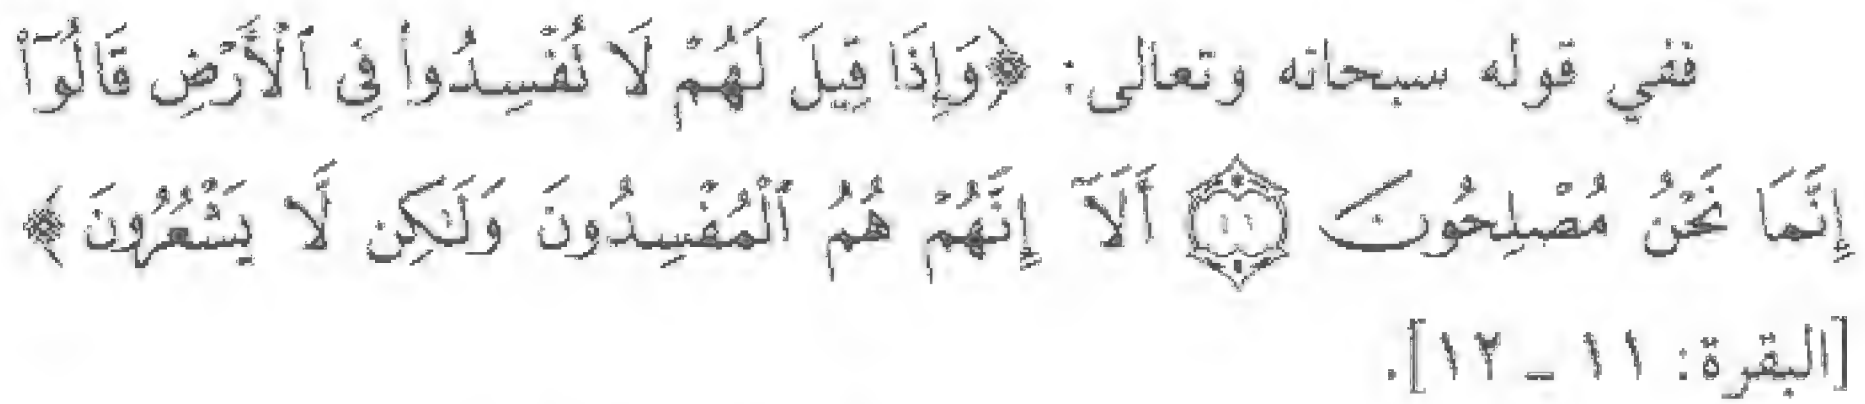 ففي قوله سبحانه وتعالى: ﴿وَإِذَا قِيلَ لَهُمْ لَا تُفْسِدُوا۟ فِى ٱلْأَرْضِ قَالُوٓا۟
إِنَّمَا نَحْنُ مُصْلِحُونَ ١١ أَلَآ إِنَّهُمْ هُمُ ٱلْمُفْسِدُونَ وَلَـٰكِن لَّا يَشْعُرُونَ﴾
[البقرة: ١١ - ١٢].